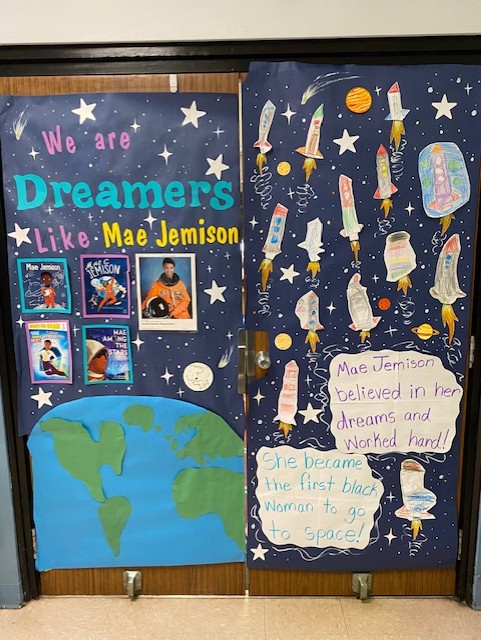 We are
Dreamers
Like Mae Jemison
Mae Jemison
MAE C.
JEMISON
MAE
AMONG THE
STARS
Mae Jemison
believed in her
dreams and
worked hard!
She became
the first black
woman to go
to space!